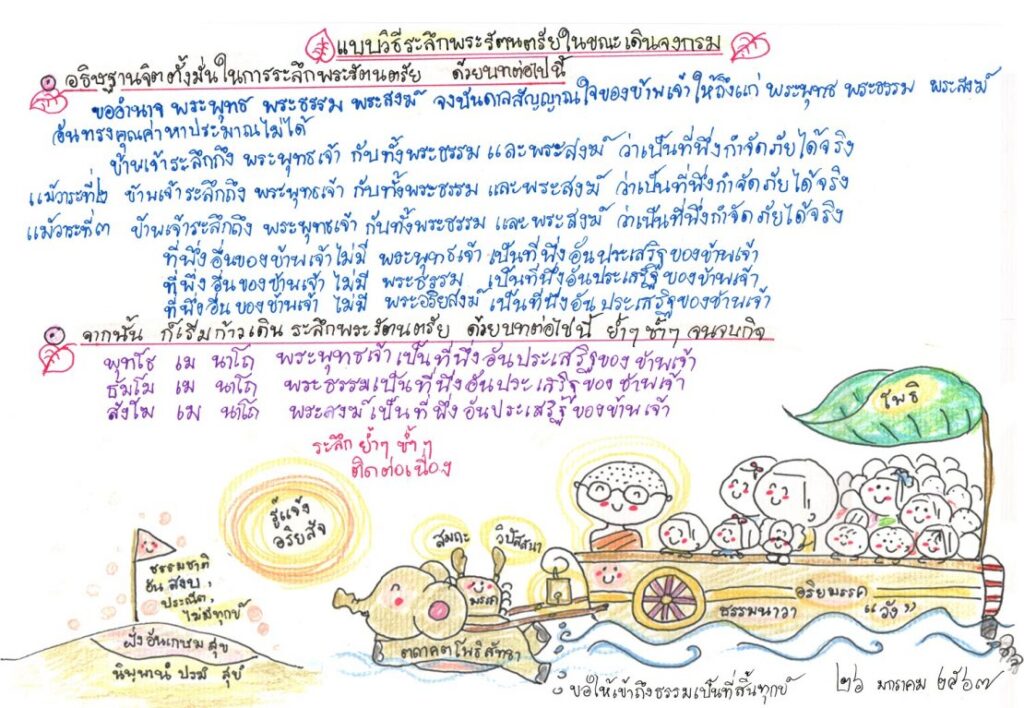 แบบวิธีระลึกพระรัตนตรัยในขณะเดินจงกรม
อธิษฐานจิตตั้งมั่นในการระลึกพระรัตนตรัย ด้วยบทต่อไปนี้
ขออำนาจ พระพุทธ พระธรรม พระสงฆ์ จงบันดาลสัญญาณใจของข้าพเจ้าให้ถึงแก่ พระพุทธ พระธรรม พระสงฆ์
อันทรงคุณค่าหาประมาณไม่ได้
ข้าพเจ้าระลึกถึง พระพุทธเจ้า กับทั้งพระธรรม และพระสงฆ์ ว่าเป็นที่พึ่งกำจัดภัยได้จริง
แม้วาระที่๒ ข้าพเจ้าระลึกถึง พระพุทธเจ้า กับทั้งพระธรรม และพระสงฆ์ ว่าเป็นที่พึ่งกำจัดภัยได้จริง
แม้วาระที่๓ ข้าพเจ้าระลึกถึง พระพุทธเจ้า กับทั้งพระธรรม และพระสงฆ์ ว่าเป็นที่พึ่งกำจัดภัยได้จริง
ที่พึ่งอื่นของข้าพเจ้าไม่มี พระพุทธเจ้า เป็นที่พึ่งอันประเสริฐของข้าพเจ้า
ที่พึ่งอื่นของข้าพเจ้า ไม่มี พระธรรม เป็นที่พึ่งอันประเสริฐของข้าพเจ้า
ที่พึ่งอื่นของข้าพเจ้า ไม่มี พระอริยสงฆ์ เป็นที่พึ่งอันประเสริฐของข้าพเจ้า
จากนั้น ก็เริ่มก้าวเดิน ระลึกพระรัตนตรัย ด้วยบทต่อไปนี้ ย้ำๆ ซ้ำๆ จนจบกิจ
พุทโธ เม นาโถ พระพุทธเจ้าเป็นที่พึ่งอันประเสริฐของข้าพเจ้า
ธัมโม เม นาโถ พระธรรมเป็นที่พึ่งอันประเสริฐของข้าพเจ้า
สังโฆ เม นาโถ พระสงฆ์เป็นที่พึ่งอันประเสริฐของข้าพเจ้า
ระลึก ย้ำๆ ซ้ำๆ
ติดต่อเนื่อง
โพธิ
รู้แจ้ง
อริยสัจ
สมถะ วิปัสสนา
มรรค
ธรรมชาติ
อันสงบ,
ประณีต,
ไม่มีทุกข์
ฝั่งอันเกษมสุข
นิพพานํ ปรมํ สุขํ
ตถาคตโพธิสัทธา
อริยมรรค
ธรรมนาวา "วัง"
ขอให้เข้าถึงธรรมเป็นที่สิ้นทุกข์
๒๖ มกราคม ๒๕๖๗